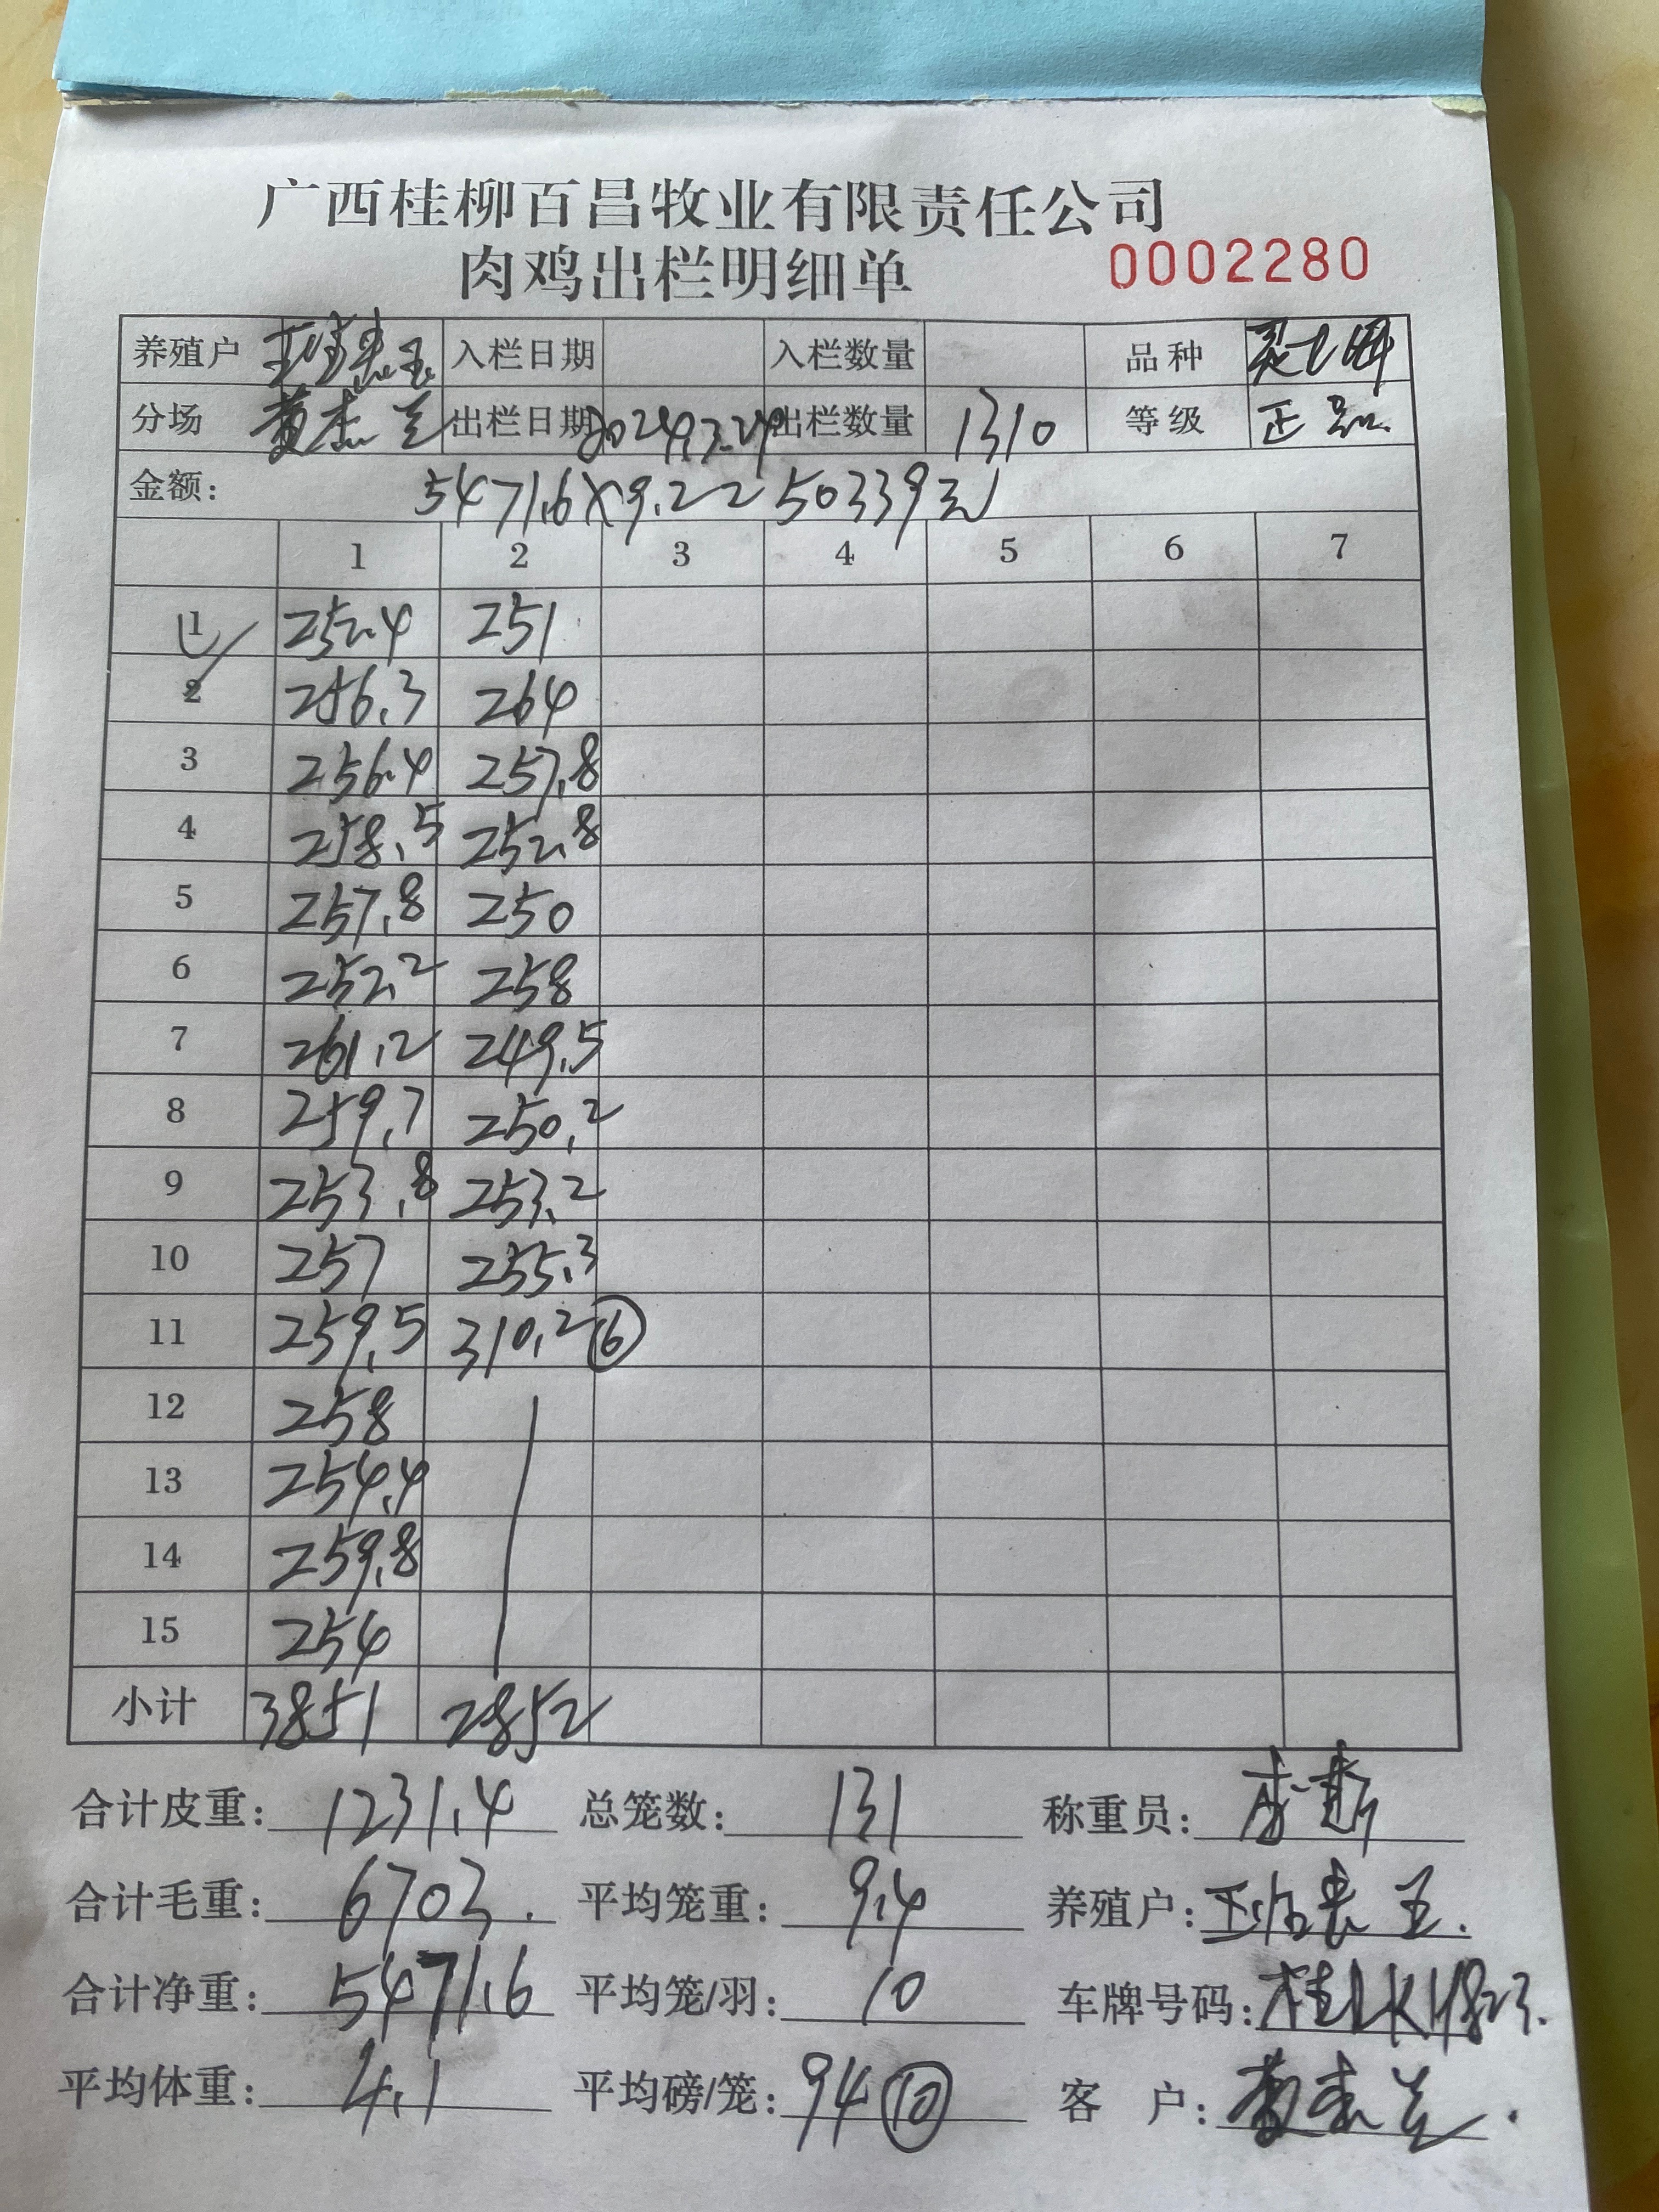 广西桂柳百昌牧业有限责任公司
肉鸡出栏明细单 0002280
养殖户 入栏日期 入栏数量 品种
分场 出栏日期 出栏数量 1310 等级 正品
金额: 5471.6×9.2=50339元
1 2 3 4 5 6 7
1 252.4 251
2 256.3 264
3 256.4 257.8
4 258.5 252.8
5 257.8 250
6 252.2 258
7 261.2 249.5
8 259.7 250.2
9 253.8 253.2
10 257 255.3
11 259.5 310.2 ⑥
12 258
13 254.4
14 259.8
15 254
小计 3851 2852
合计皮重: 1231.4 总笼数: 131 称重员:
合计毛重: 6703. 平均笼重: 9.4 养殖户:
合计净重: 5471.6 平均笼/羽: 10 车牌号码:
平均体重: 4.1 平均磅/笼: 94 ⑩ 客 户: